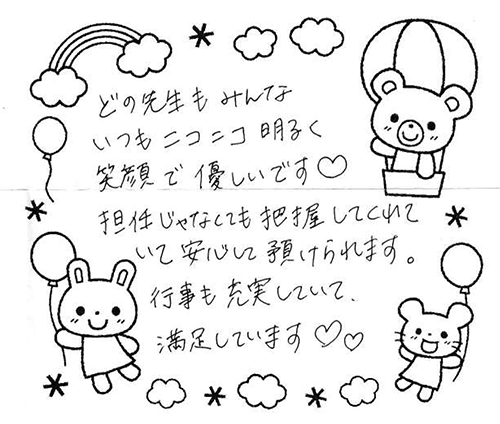 どの先生も みんな
いつも ニコニコ 明るく
笑顔で 優しいです♡
担任じゃなくても 把握してくれて
いて 安心して 預けられます。
行事も 充実していて、
満足しています♡♡